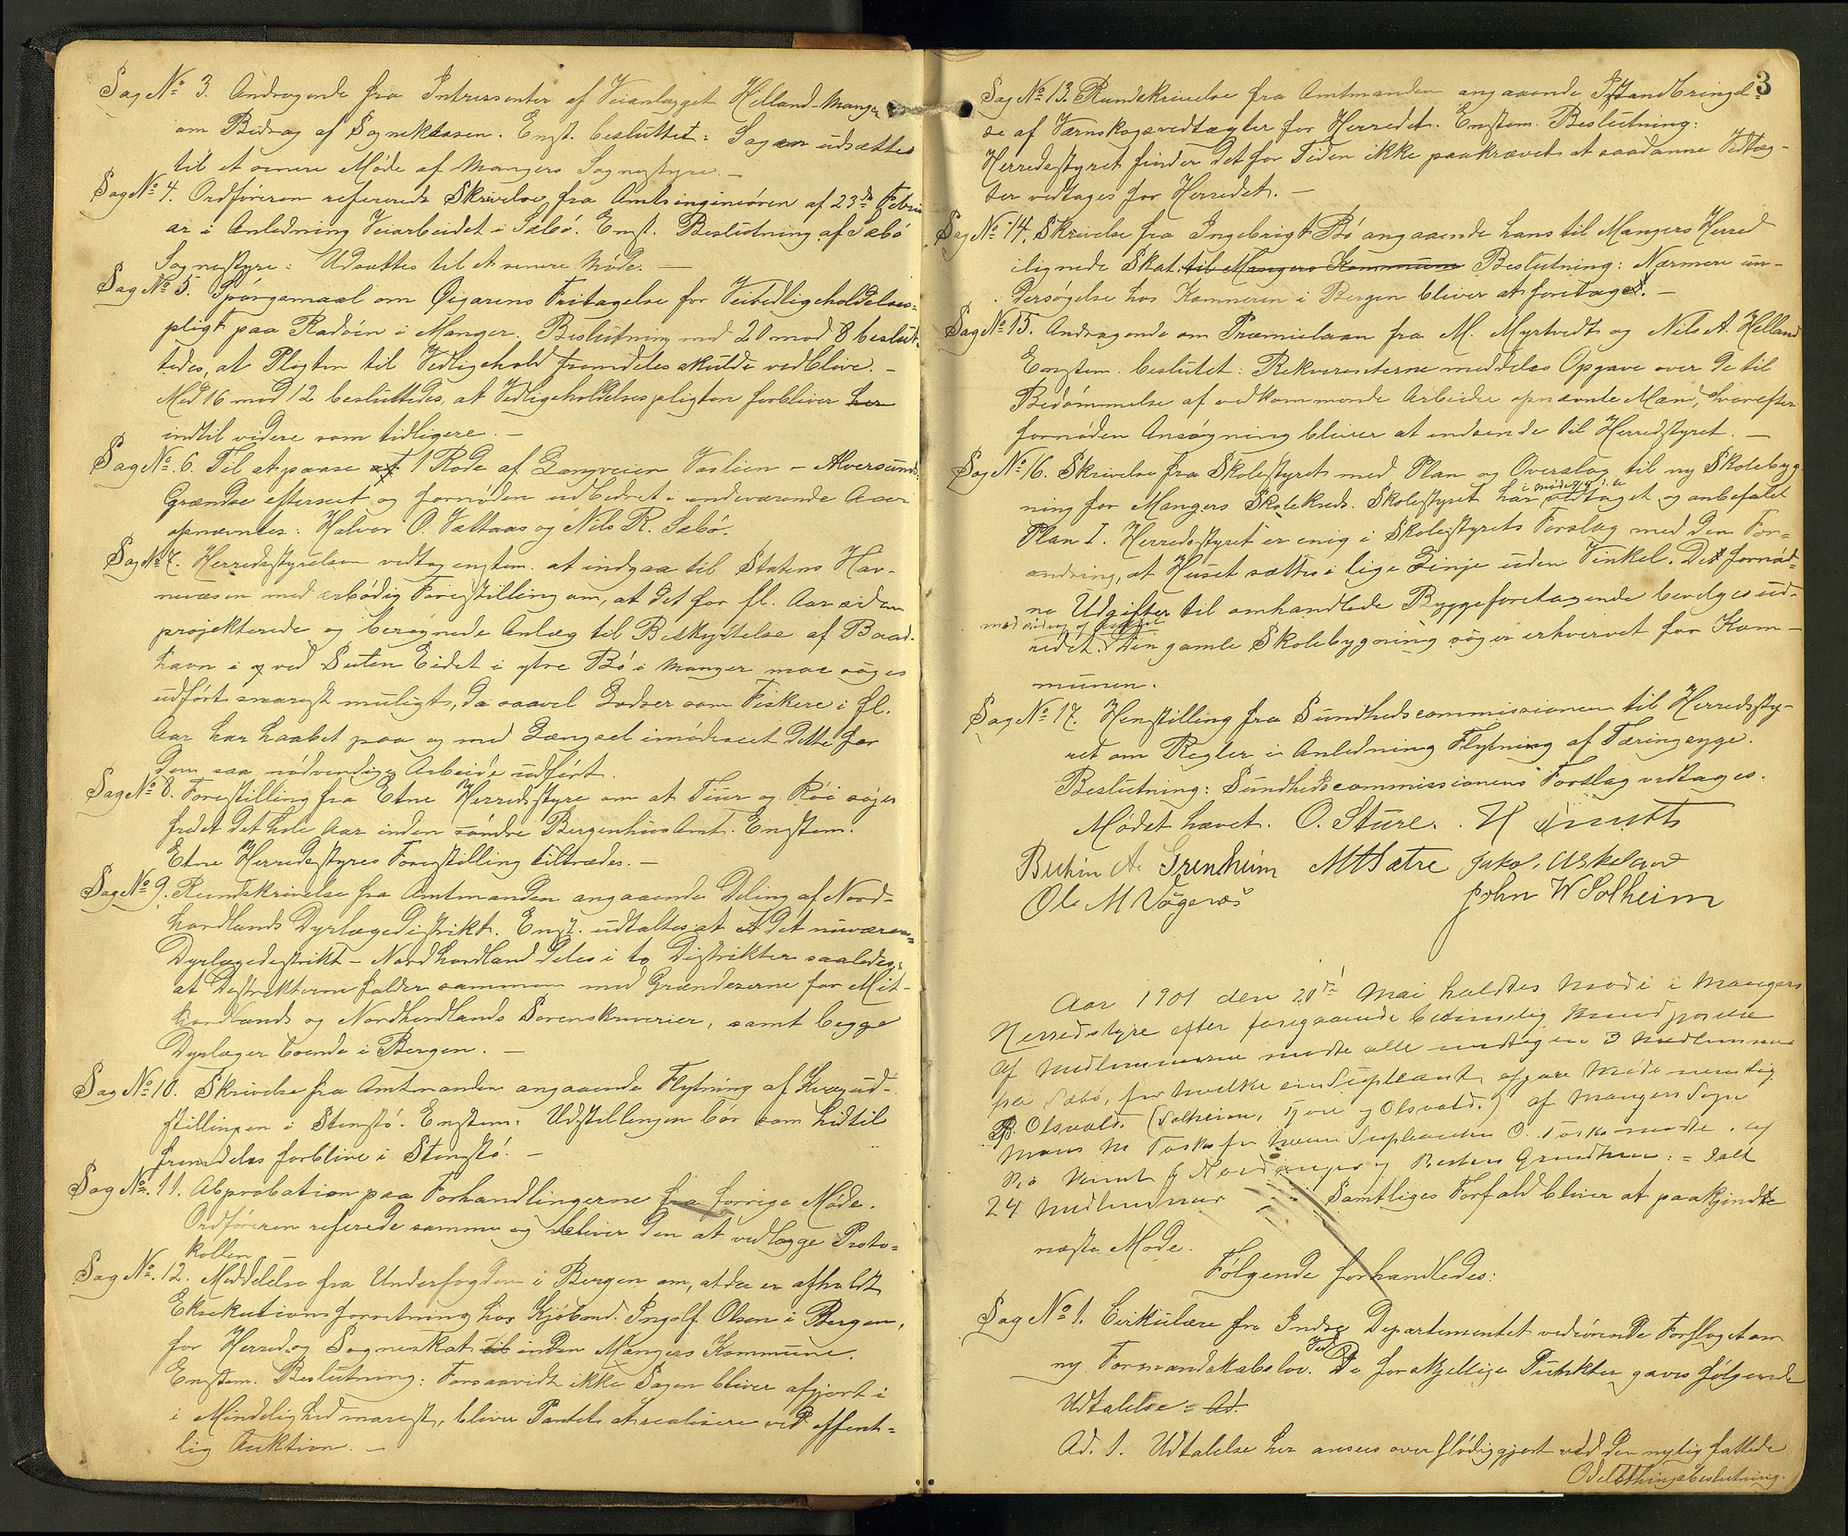 Sag No 3. Andragende fra Intressenter af Veianlægget Helland-Manger
om Bidrag af Sognekassen. Enst. besluttet: Sagen udsættes
til et senere Møde af Mangers Sognestyre. –
Sag No 4. Ordføreren refererede Skrivelse fra Amtsingeniøren af 23de Febru
ar i Anledning Veiarbeidet i Sæbø. Enst. Beslutning af Sæbø
Sognestyre: Udsættes til et senere Møde. –
Sag No 5. Spørgsmaal om Øigarens Fritagelse for Veivedligeholdelses-
pligt paa Radøen i Manger. Beslutning med 20 mod 8 beslut-
tedes, at Pligten til Vedligehold fremdeles skulde vedblive. –
Med 16 mod 12 besluttedes, at Vedligeholdelsespligten forbliver her
indtil videre som tidligere. –
Sag No 6. Til at passe at 1 Rode af Langveien Vaslien – Alversunds
Grændse efterseet og fornøden udbedret i indeværende Aaer
opnævntes: Halvor O. Vættaas og Nils R. Sæbø.
Sag No 7. Herredsstyrelsen vedtog enstem. at indgaa til Statens Hav-
nevæsen med ærbødig Forestilling om, at det for fl. Aar siden
projekterede og beregnede Anlæg til Beskyttelse af Baad-
havn i og ved Suten Eidet i ytre Bø i Manger maa søges
udført snarest muligt, da saavel Lodser som Fiskere i fl.
Aar har haabet paa og med Længsel imødeseet dette for
dem saa nødvendige Arbeide udført.
Sag No 8. Forestilling fra Etne Herredsstyre om at Tiur og Røi søges
fredet det hele Aar inden søndre Bergenhus Amt. Enstem.
Etne Herredsstyres Forestilling tiltrædes. –
Sag No 9. Rundskrivelse fra Amtmanden angaaende Deling af Nord-
hordlands Dyrlægedistrikt. Enst. udtaltes at det nuværen-
Dyrlægedistrikt – Nordhordland deles i to Distrikter saaledes,
at Distrikterne falder sammen med Grændserne for Mid-
hordlands og Nordhordlands Sorenskriverier, samt begge
Dyrlæger boende i Bergen. –
Sag No 10. Skrivelse fra Amtmanden angaaende Flytning af Kvægud-
stillingen i Stenstø. Enstem. Udstillingen bør som hidtil
fremdeles forblive i Stenstø. –
Sag No 11. Abprobation paa Forhandlingerne fra forrige Møde.
Ordføreren referede samme og bliver den at vedlægge Proto-
kollen
Sag No 12. Meddelelse fra Underfogden i Bergen om, at der er afholdt
Eksekutionsforretning hos Kjøbmd. Ingolf Olsen i Bergen,
for Herred og Sogneskat til inden Mangers Kommune.
Enstem. Beslutning: Forsaavidt ikke Sagen bliver afgjort i
i Mindelighed snarest, bliver Pantet at realisere ved offent-
lig Auktion. –
3
Sag No 13. Rundskrivelse fra Amtmanden angaaende Istandbringel-
se af Værnskogsvedtægter for Herredet. Enstem. Beslutning:
Herredsstyret finder det for Tiden ikke paakrævet at saadanne Vedtæg-
ter vedtages for Herredet. –
Sag No 14. Skrivelse fra Ingebrigt Bø angaaende hans til Mangers Herred
ilignede Skat til Mangers Kommune Beslutning: Nærmere un-
dersøgelse hos Kemneren i Bergen bliver at foretaget. –
Sag No 15. Andragende om Præmielaan fra M. Myrtvedt og Nils A. Helland
Enstem. beslutet: Rekvirenterne meddeles Opgave over de til
Bedømmelse af vedkommende Arbeider opnævnte Mænd, hvorefter
fornøden Ansøgning bliver at indsende til Herredstyret. –
Sag No 16. Skrivelse fra Skolestyret med Plan og Overslag til ny Skolebyg
ning for Mangers Skolekreds. Skolestyret har vedtaget og anbefalet
Plan I. Herredsstyret er enig i Skolestyrets Forslag med den For-
andring, at Huset sættes i lige Linje uden Vinkel. Det fornød-
ne Udgifter til omhandlede Byggeforetagende bevilges ud-
redet. Den gamle Skolebygning søges erhvervet for Kom-
munen.
Sag No 17. Henstilling fra Sundhedscommissionen til Herredssty-
ret om Regler i Anledning Flytning af Tæringssyge.
Beslutning: Sundhedscommissionens Forslag vedtages.
Mødet hævet. O. Sture.
A. Grindheim M H Sætre Jakob Askeland
Ole M Vågenes John W Solheim
Aar 1901 den 20de Mai holdtes møde i Mangers
Herredsstyre efter foregaaende
af Medlemmerne mødte alle undtagen 3 Medlemmer
fra Sæbø, for hvilke en Supleant
B. Olsvold. (Solheim, og Olsvold.) af Mangers Sogn
Mons for hvem Supleanten O. mødte. og
24 Medlemmer Samtliges Forfald bliver at paakjende
næste Møde.
Følgende forhandledes:
Sag No 1. Cirkulære fra Indre Departementet vedrørende Forslaget om
ny Formandskabslov. Ved De forskjellige Punkter gaves følgende
Udtalelse: Ad.
Ad. 1. Udtalelse her ansees overflødiggjort ved den nylig fattede
Odelsthingsbeslutning.